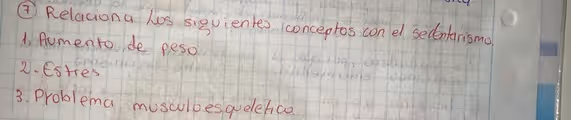 ⑦ Relaciona los siguientes conceptos con el sedentarismo
1. Aumento de peso
2. Estres
3. Problema musculoesqueletico